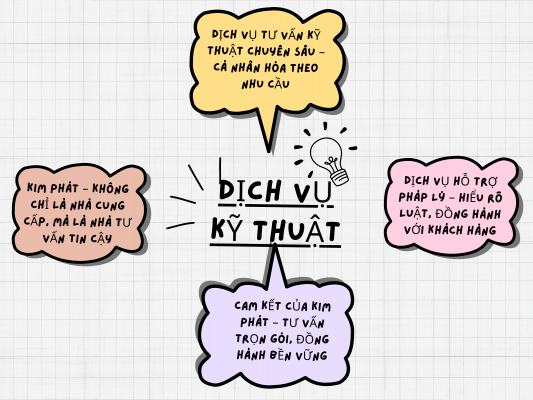 DỊCH VỤ TƯ VẤN KỸ
THUẬT CHUYÊN SÂU –
CÁ NHÂN HÓA THEO
NHU CẦU
KIM PHÁT – KHÔNG
CHỈ LÀ NHÀ CUNG
CẤP, MÀ LÀ NHÀ TƯ
VẤN TIN CẬY
DỊCH VỤ
KỸ THUẬT
DỊCH VỤ HỖ TRỢ
PHÁP LÝ – HIỂU RÕ
LUẬT, ĐỒNG HÀNH
VỚI KHÁCH HÀNG
CAM KẾT CỦA KIM
PHÁT – TƯ VẤN
TRỌN GÓI, ĐỒNG
HÀNH BỀN VỮNG